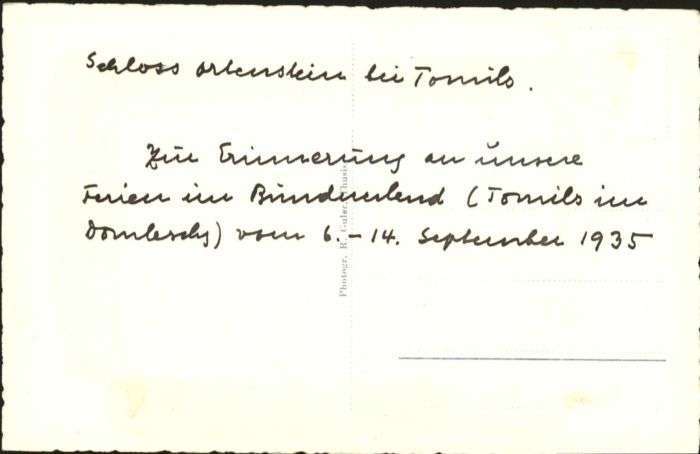 Schloss Ortenstein bei Tomils.
Zur Erinnerung an unsere
Ferien im Bündnerland (Tomils im
Domleschg) vom 6.–14. September 1935
Photogr. R. Guler, Thusis